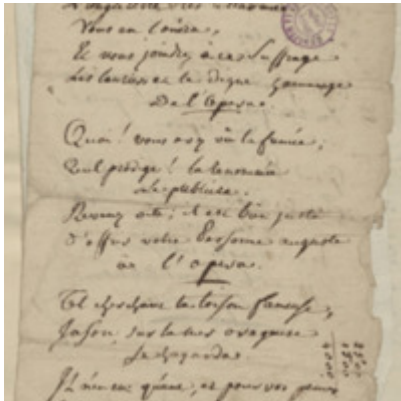 Vous en
Et vous joindrez à ce suffrage
de la digne hommage
De l'Opera.
Quoi! vous avez vu la fumée,
Quel prodige! la renommée
Le publiera.
Revenez vite; il est bien juste
D'offrir votre personne auguste
à l'opera.
Tel cherchant la toison fameuse,
Jason sur la mer orageuse
Se hazarda.
Il n'en eut qu'une, et pour vos peines